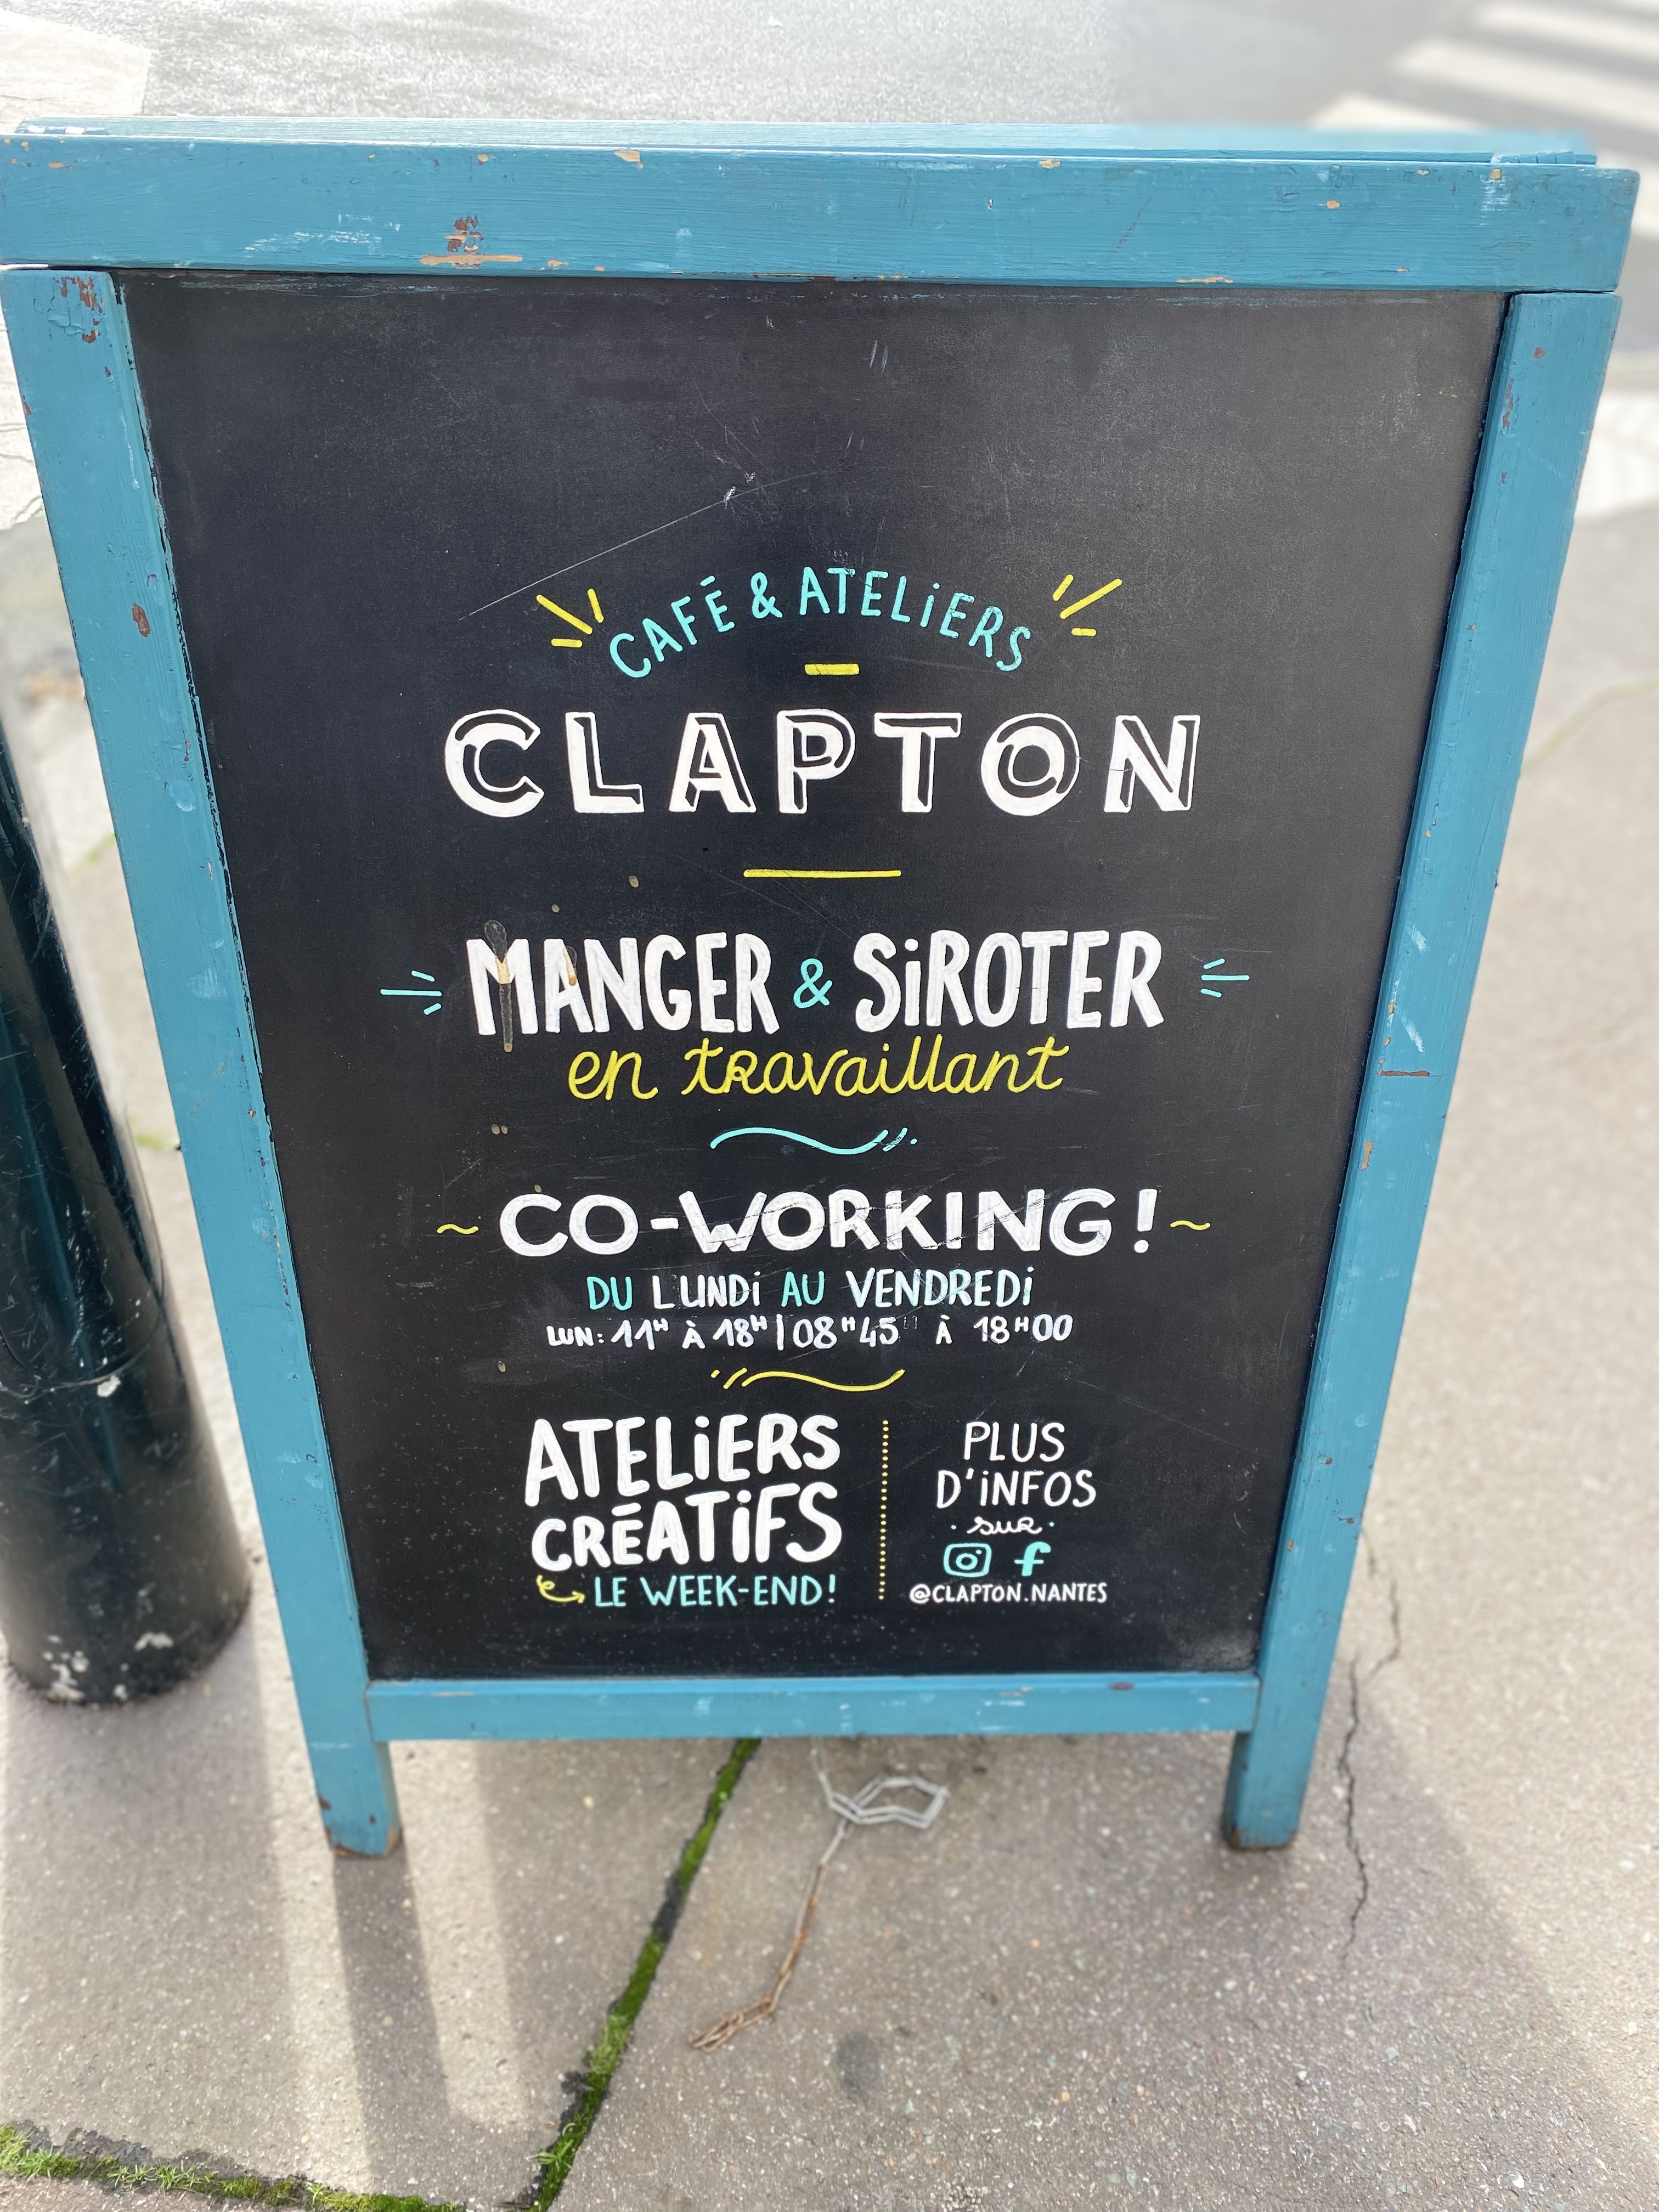 CAFÉ & ATELiERS
CLAPTON
MANGER & SiROTER
en travaillant
CO-WORKING!
DU LUNDi AU VENDREDi
LUN: 11H À 18H | 08H45 À 18H00
ATELiERS
CRÉATiFS
LE WEEK-END!
PLUS
D'iNFOS
sur
@CLAPTON.NANTES